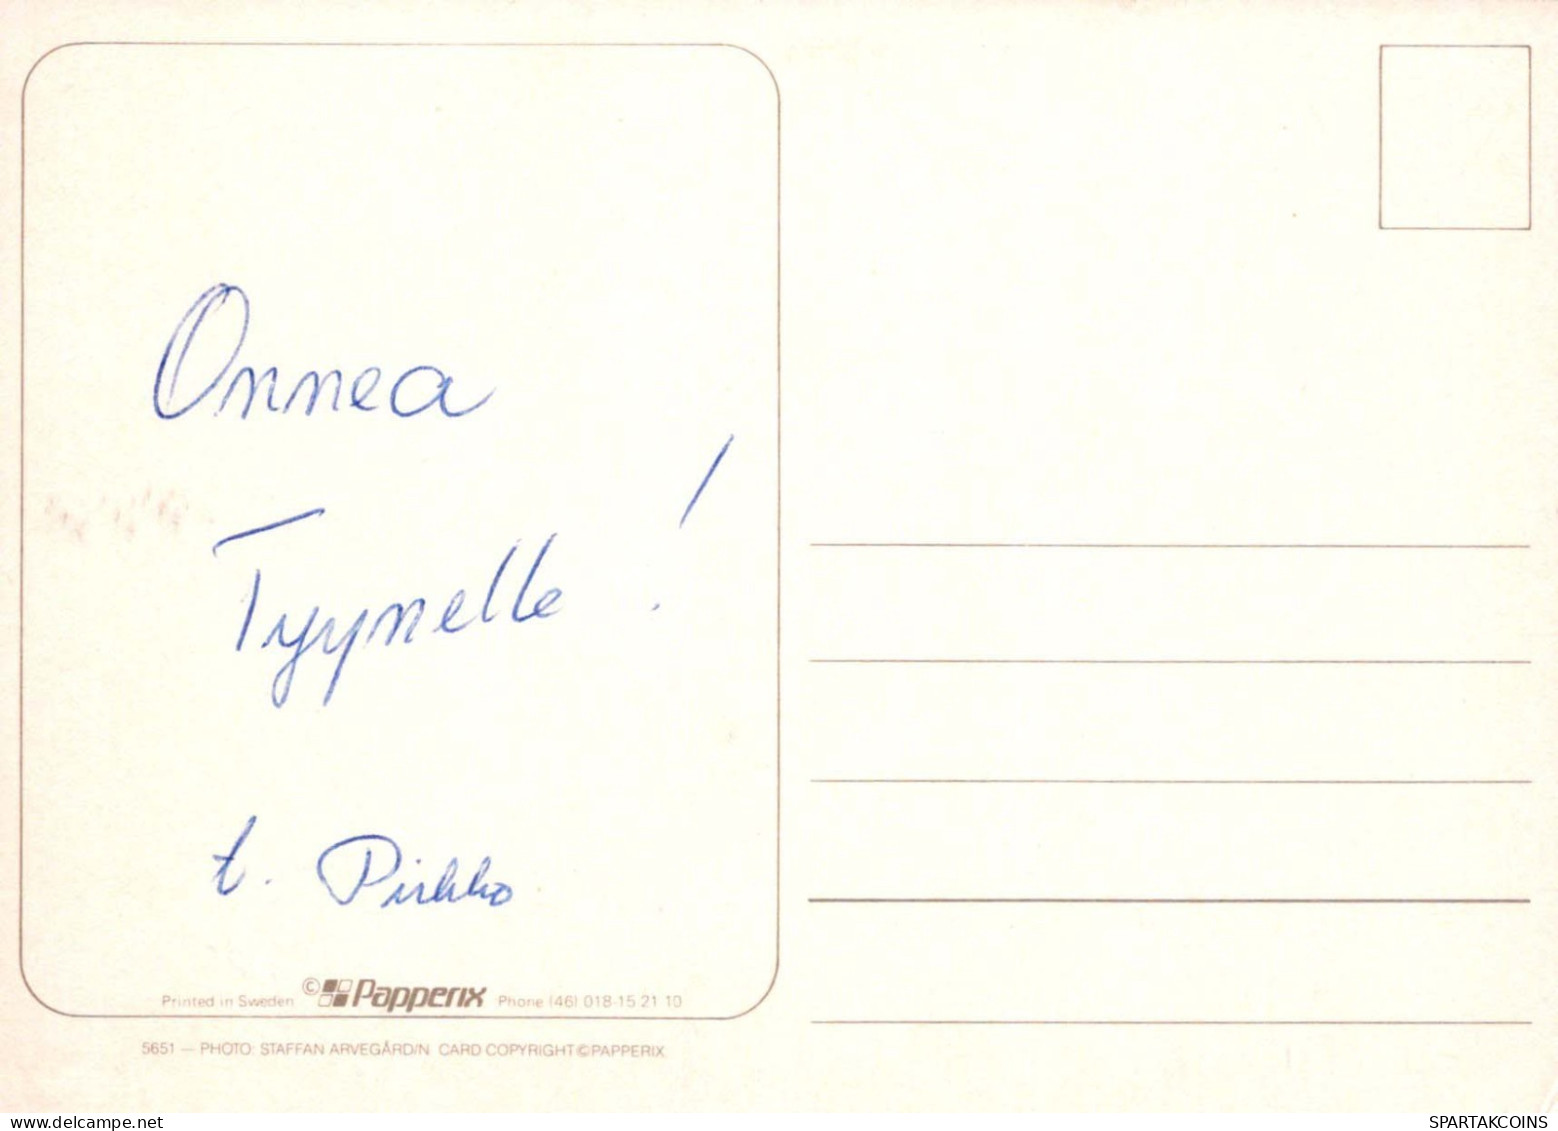 Onnea
Tyynelle!
t. Pirkko
Printed in Sweden © Papperix Phone (46) 018-15 21 10
5651 — PHOTO: STAFFAN ARVEGÅRD/N CARD COPYRIGHT © PAPPERIX
www.delcampe.net
SPARTAKCOINS